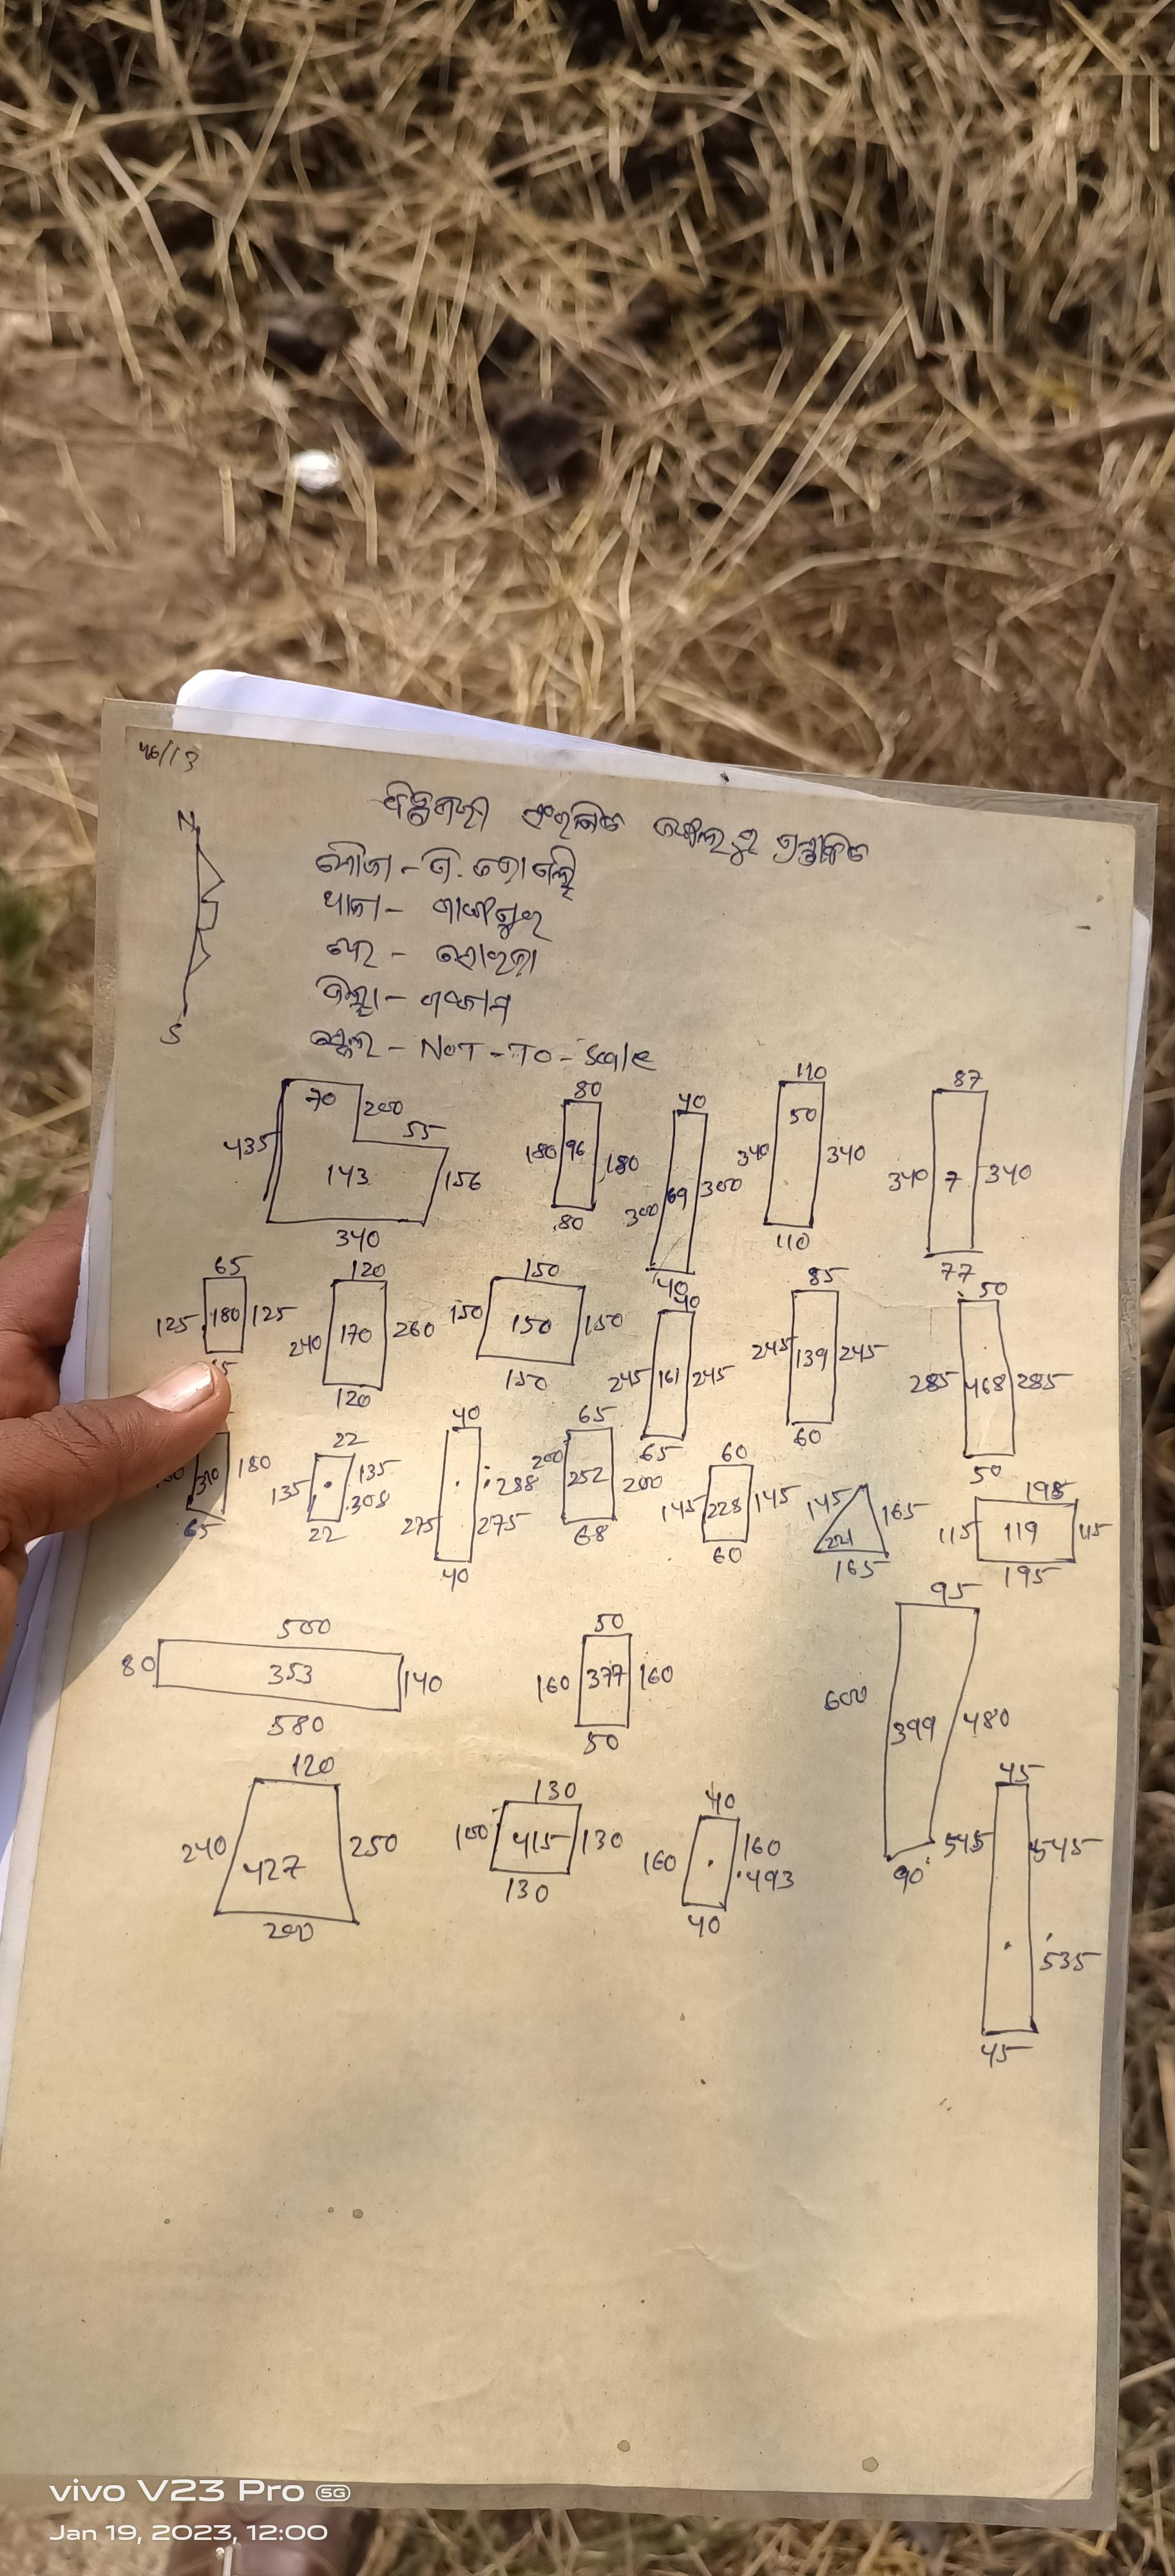 46/13
N
S
ମୌଜା -
ଥାନା -
ଜିଲ୍ଲା - ଗଞ୍ଜାମ
ସ୍କେଲ - NOT - TO - Scale
70 200 55 435 143 156 340
80 180 96 180 80
40 300 69 300 40
110 50 340 340 110
87 340 7 340 77
65 125 180 125
120 240 170 260 120
150 150 150 150 150
40 245 161 245 65
85 245 139 245 60
50 285 468 285 50
310 180 65
22 135 135 308 22
40 288 275 275 40
65 200 252 200 68
60 145 228 145 60
145 165 221 165
198 115 119 115 195
500 80 353 140 580
50 160 377 160 50
95 600 399 480 90
120 240 427 250 200
130 100 415 130 130
40 160 160 493 40
45 545 545 535 45
vivo V23 Pro 5G
Jan 19, 2023, 12:00